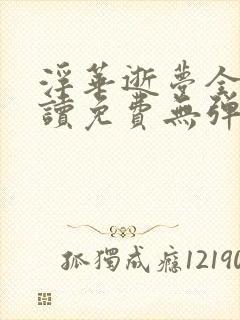 淫華逝夢全
讀免費無彈
孤獨成癮12190